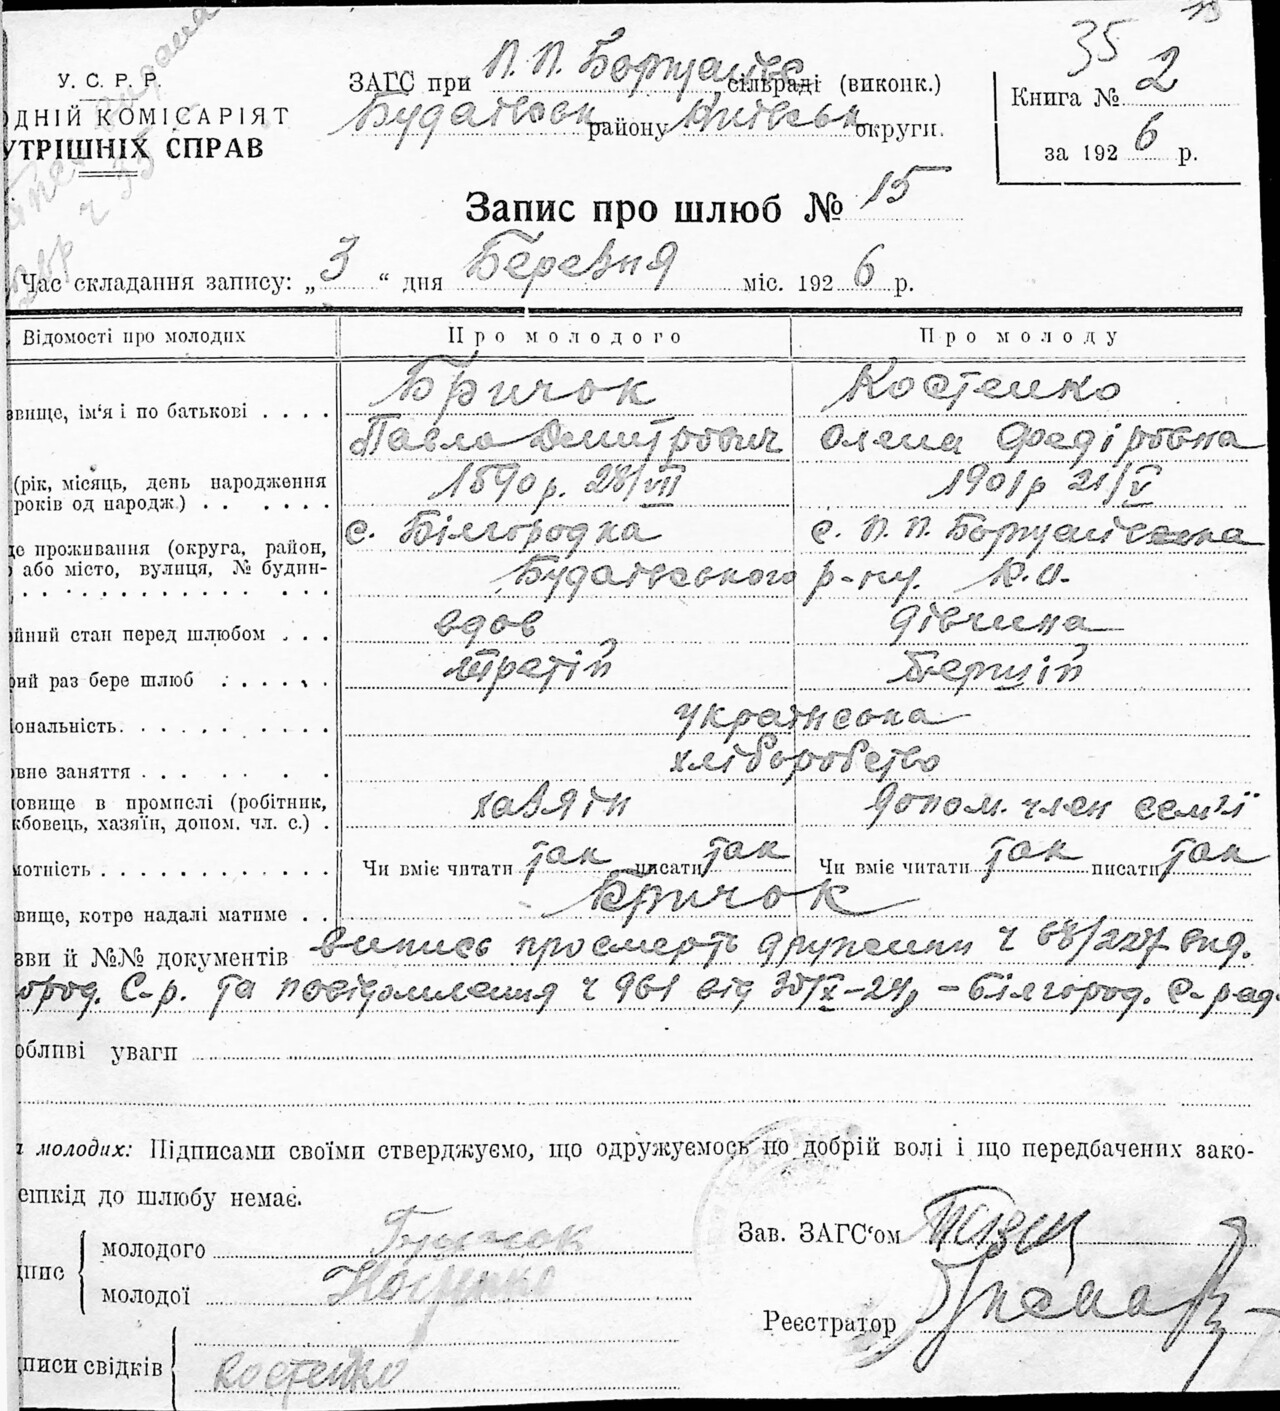 35 19
У. С. Р. Р.
ОДНІЙ КОМІСАРІЯТ
УТРІШНІХ СПРАВ
ЗАГС при П. П. Борщагівс сільраді (виконк.)
Будаївськ району Київськ округи.
Книга № 2
за 1926 р.
Запис про шлюб № 15
Час складання запису: „3“ дня Березня міс. 1926 р.
Відомості про молодих Про молодого Про молоду
звище, ім'я і по батькові . . . . Бричок Костенко
Павло Демитрович Олена Федіровна
(рік, місяць, день народження
років од народж.) . . . . . . 1890 р. 28/VII 1901 р 21/V
це проживання (округа, район, с. Білгородка с. П. П. Борщагівська
або місто, вулиця, № будин- Будаївського р-ну. К.О.
ійний стан перед шлюбом . . . вдов дівчина
рий раз бере шлюб . . . . . третій Перший
іональність . . . . . . . . . українська
овне заняття . . . . . . . хліборобство
овище в промислі (робітник,
жбовець, хазяїн, допом. чл. с.) . хазяїн допом. член сем'ї
мотність . . . . . . . . . . . . Чи вміє читати так писати так Чи вміє читати так писати так
звище, котре надалі матиме . . Бричок
зви й №№ документів випись про смерть дружини ч 68/227 вид.
город. С-р. та повідомлення ч 961 від 30/X-24р – Білгород. С-рад.
обливі уваги
и молодих: Підписами своїми стверджуємо, що одружуємось по добрій волі і що передбачених зако-
ешкід до шлюбу немає.
дпис молодого Бричок
молодої Костенко
Зав. ЗАГС'ом
Реєстратор
дписи свідків Костенко